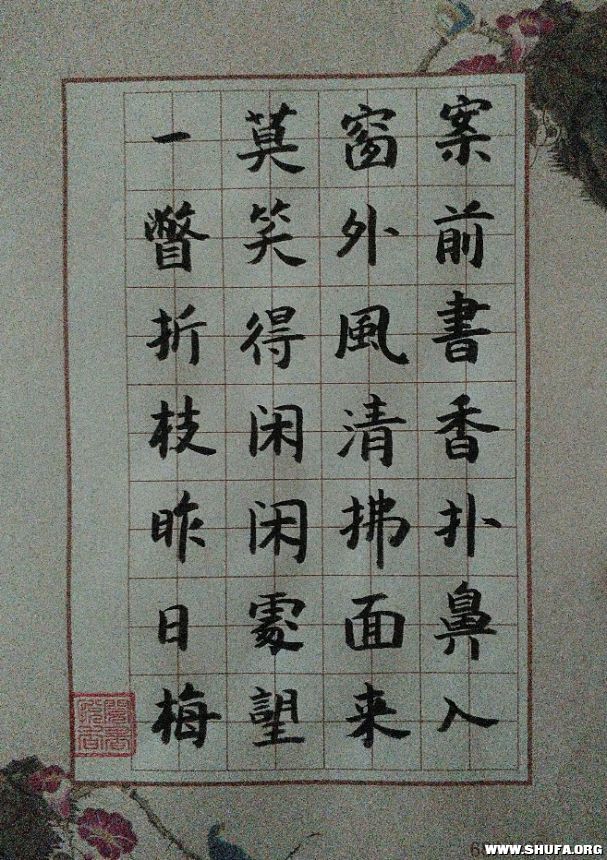 案前書香扑鼻入
窗外風清拂面来
莫笑得闲闲處望
一瞥折枝昨日梅
WWW.SHUFA.ORG